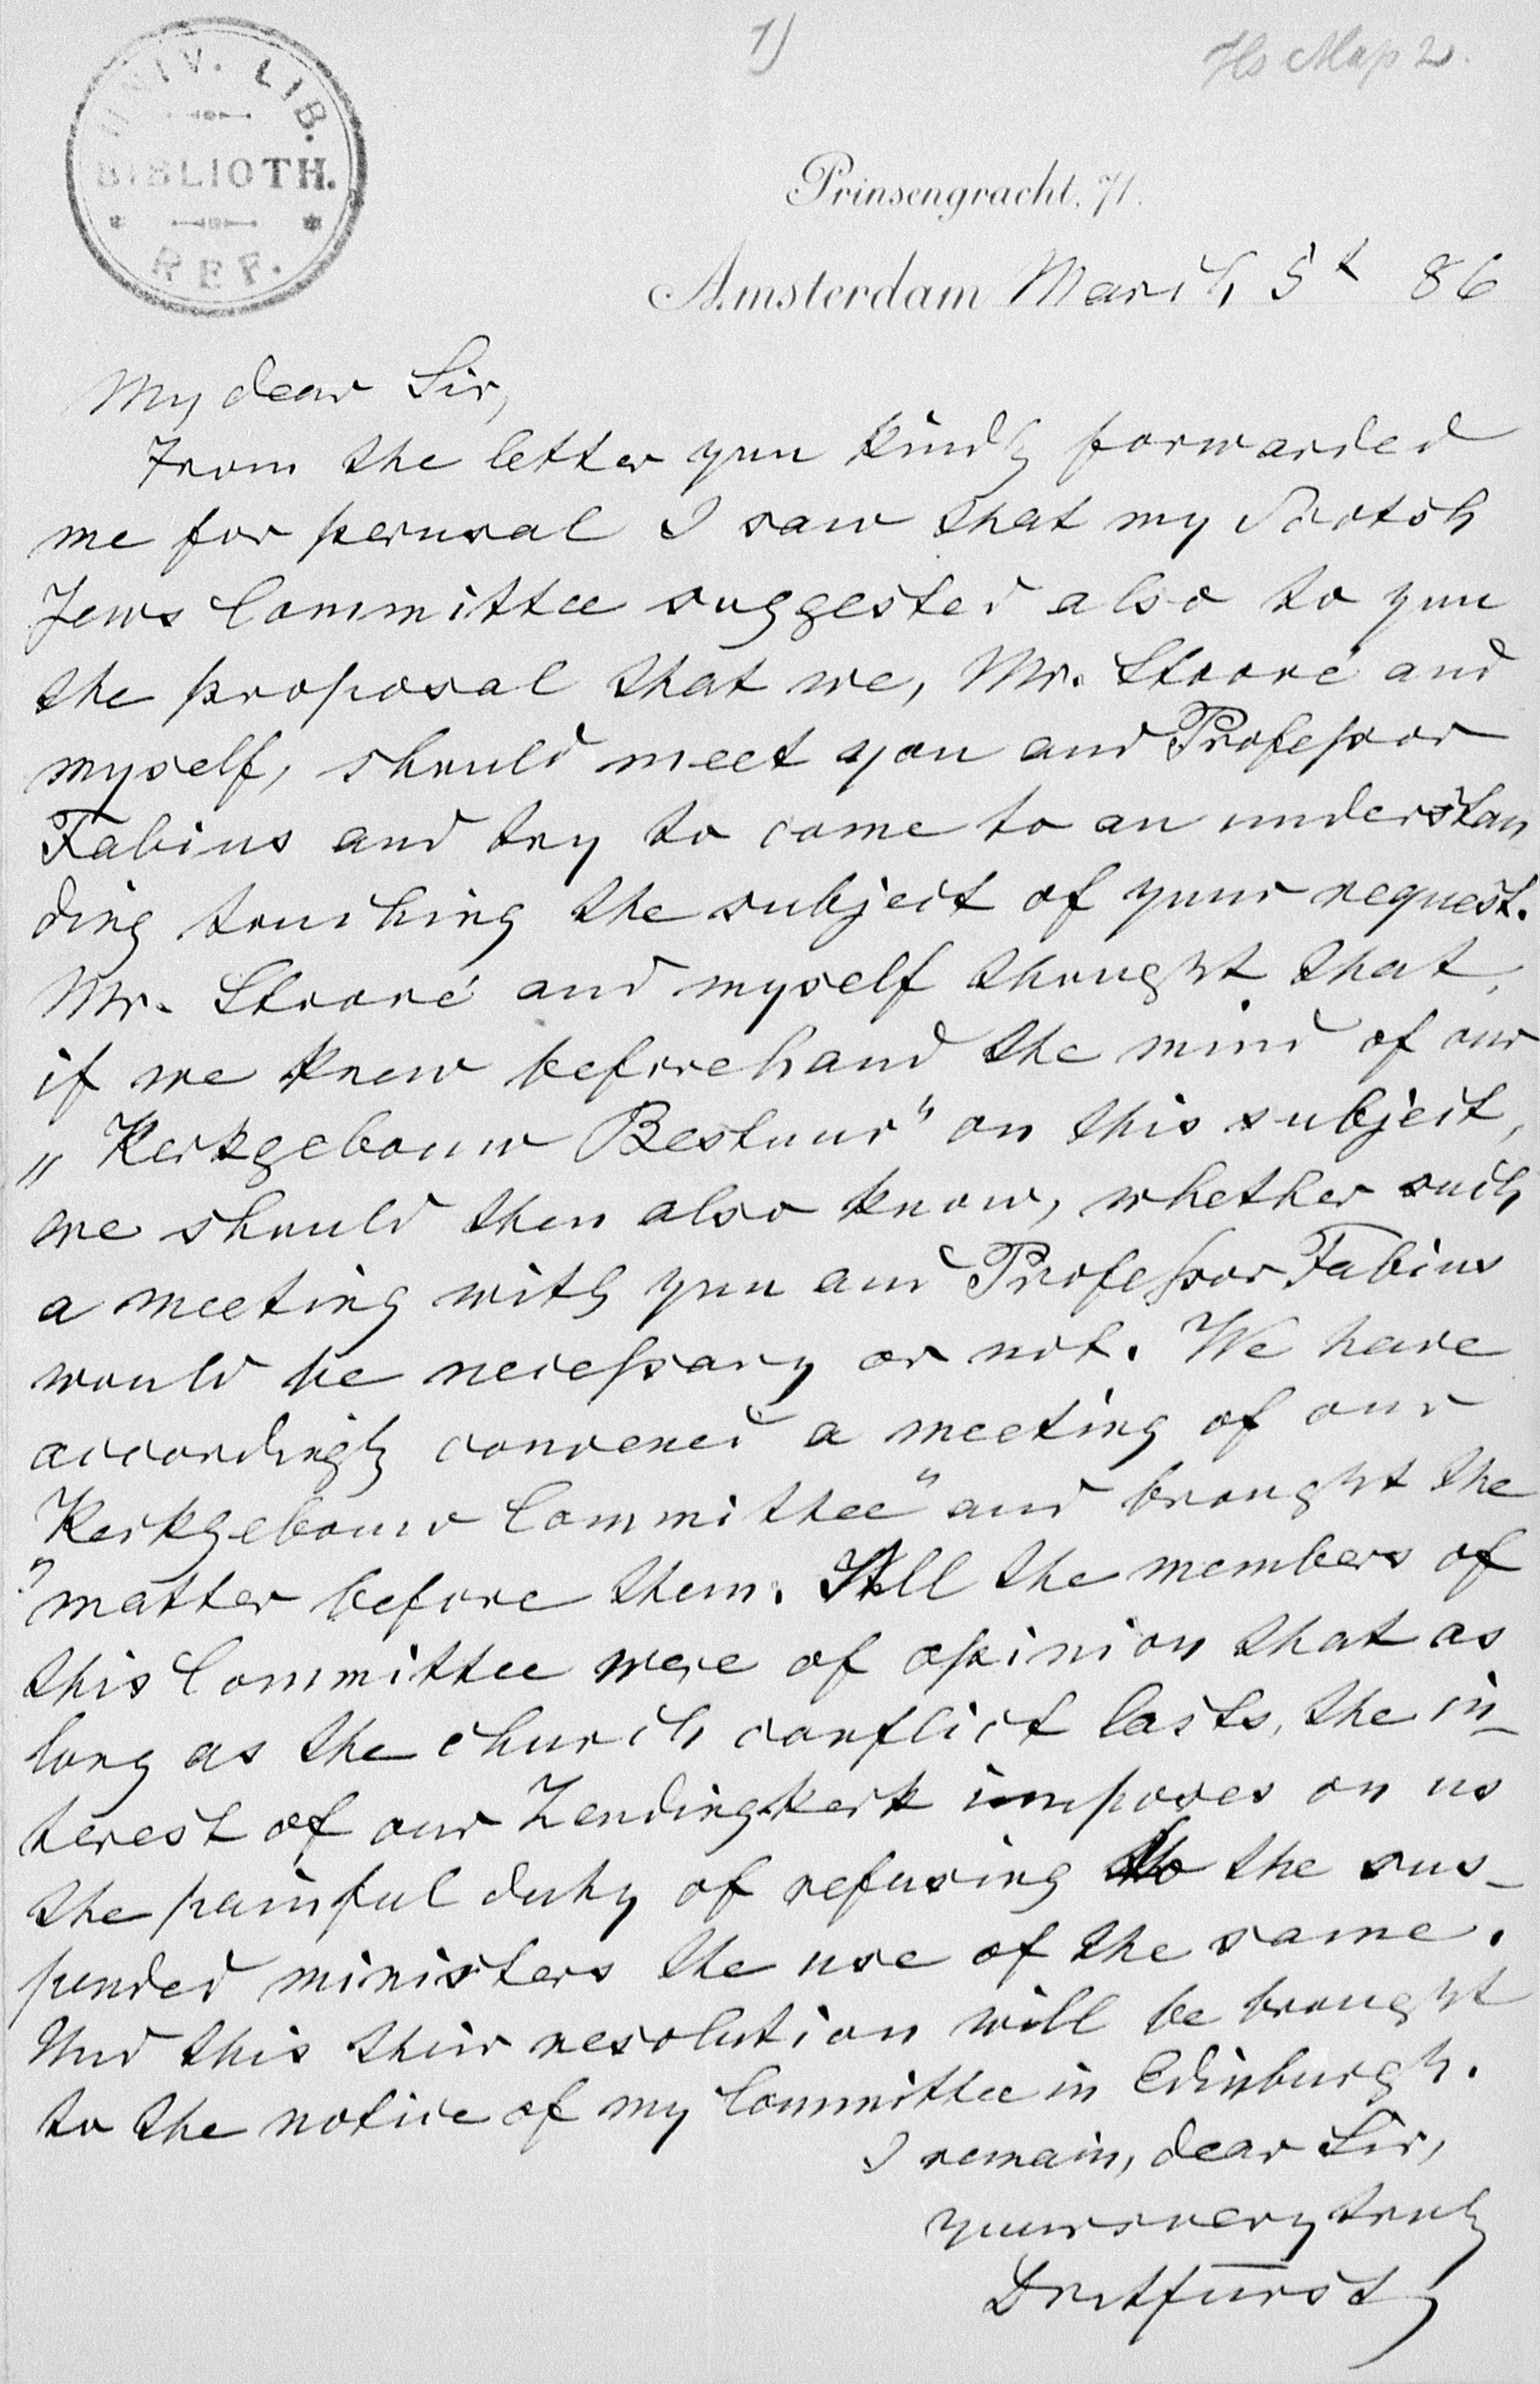 1)
Hs Map 2.
UNIV. LIB.
BIBLIOTH.
REF.
Prinsengracht, 71.
Amsterdam March 5t 86
My dear Sir,
From the letter you kindly forwarded
me for perusal I saw that my Scotch
Jews Committee suggested also to you
the proposal that we, Mr. Stroové and
myself, should meet you and Professor
Fabius and try to come to an understan
ding touching the subject of your request.
Mr. Stroové and myself thought that,
if we knew beforehand the mind of our
„Kerkgebouw Bestuur" on this subject,
we should then also know, whether such
a meeting with you and Professor Fabius
would be necessary or not. We have
accordingly convened a meeting of our
„Kerkgebouw Committee" and brought the
matter before them. All the members of
this Committee were of opinion that as
long as the church conflict lasts, the in-
terest of our Zendingkerk imposes on us
the painful duty of refusing to the sus-
pended ministers the use of the same.
And this their resolution will be brought
to the notice of my Committee in Edinburgh.
I remain, dear Sir,
yours very truly